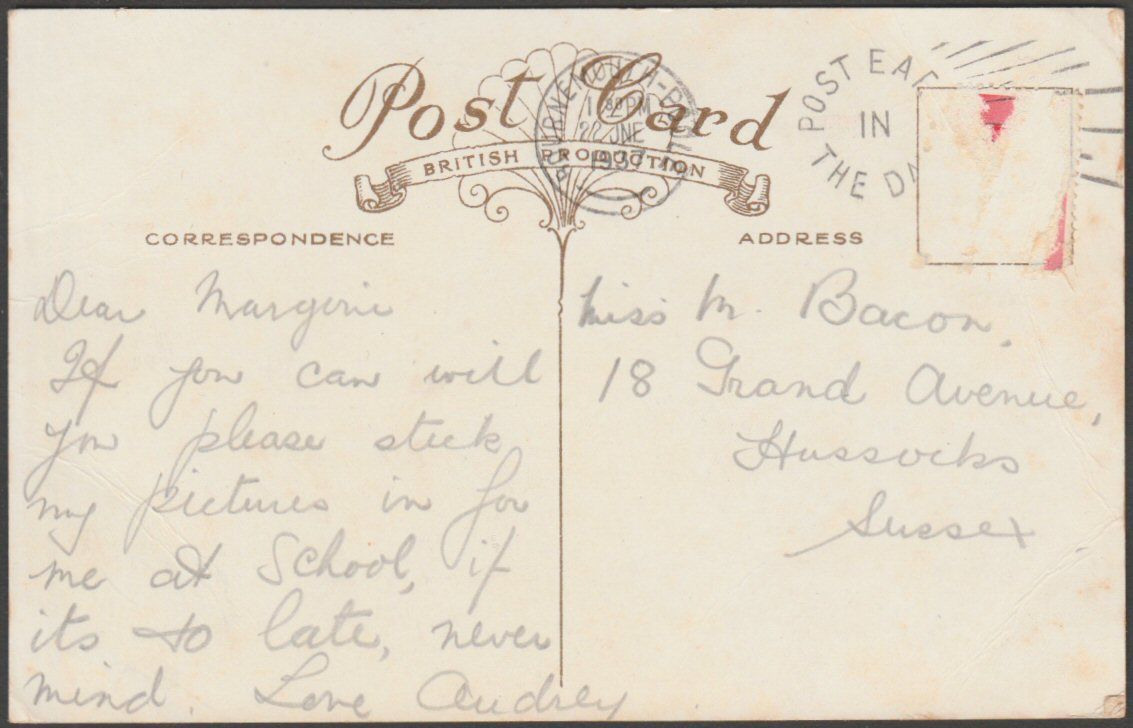 Post Card
BRITISH PRODUCTION
BOURNEMOUTH-POOLE
30 PM
22 JNE
1937
POST EAR
IN
THE DA
CORRESPONDENCE
ADDRESS
Dear Margerie
If you can will
you please stick
my pictures in for
me at School, if
its to late, never
mind. Love Audrey
Miss M. Bacon,
18 Grand Avenue,
Hassocks
Sussex